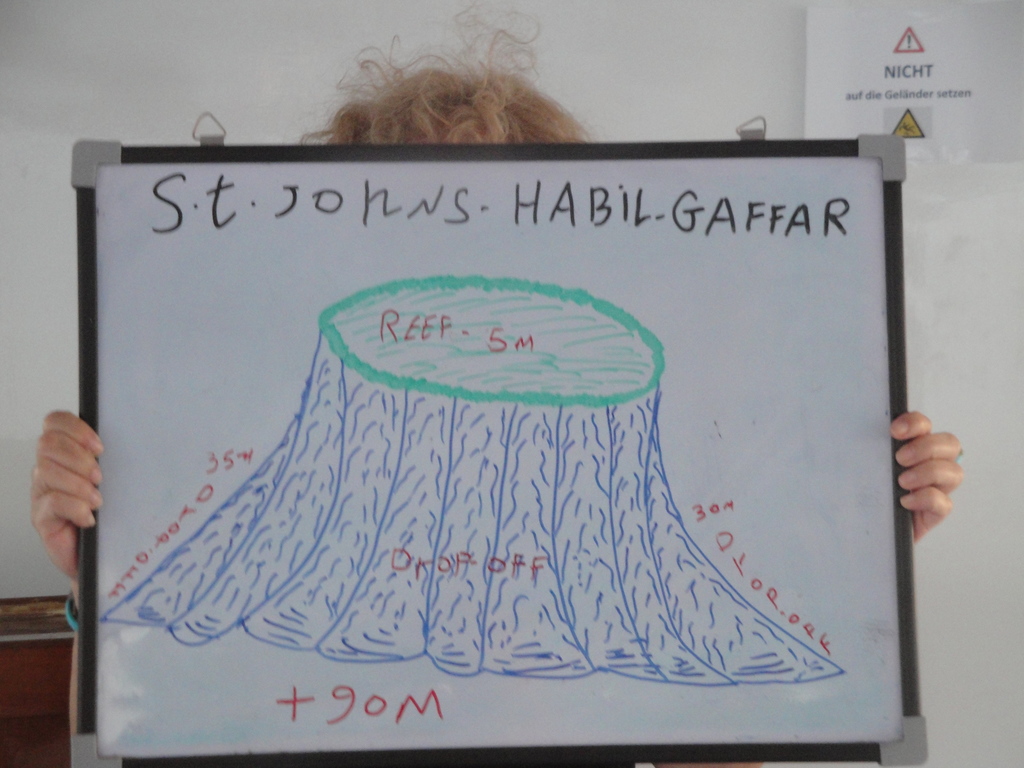 NICHT
auf die Geländer setzen
S.t. JOHNS. HABiL-GAFFAR
REEF- 5M
35M
30M
DrOP OFF
DrOP.OFF
DrOP.OFF
+90M